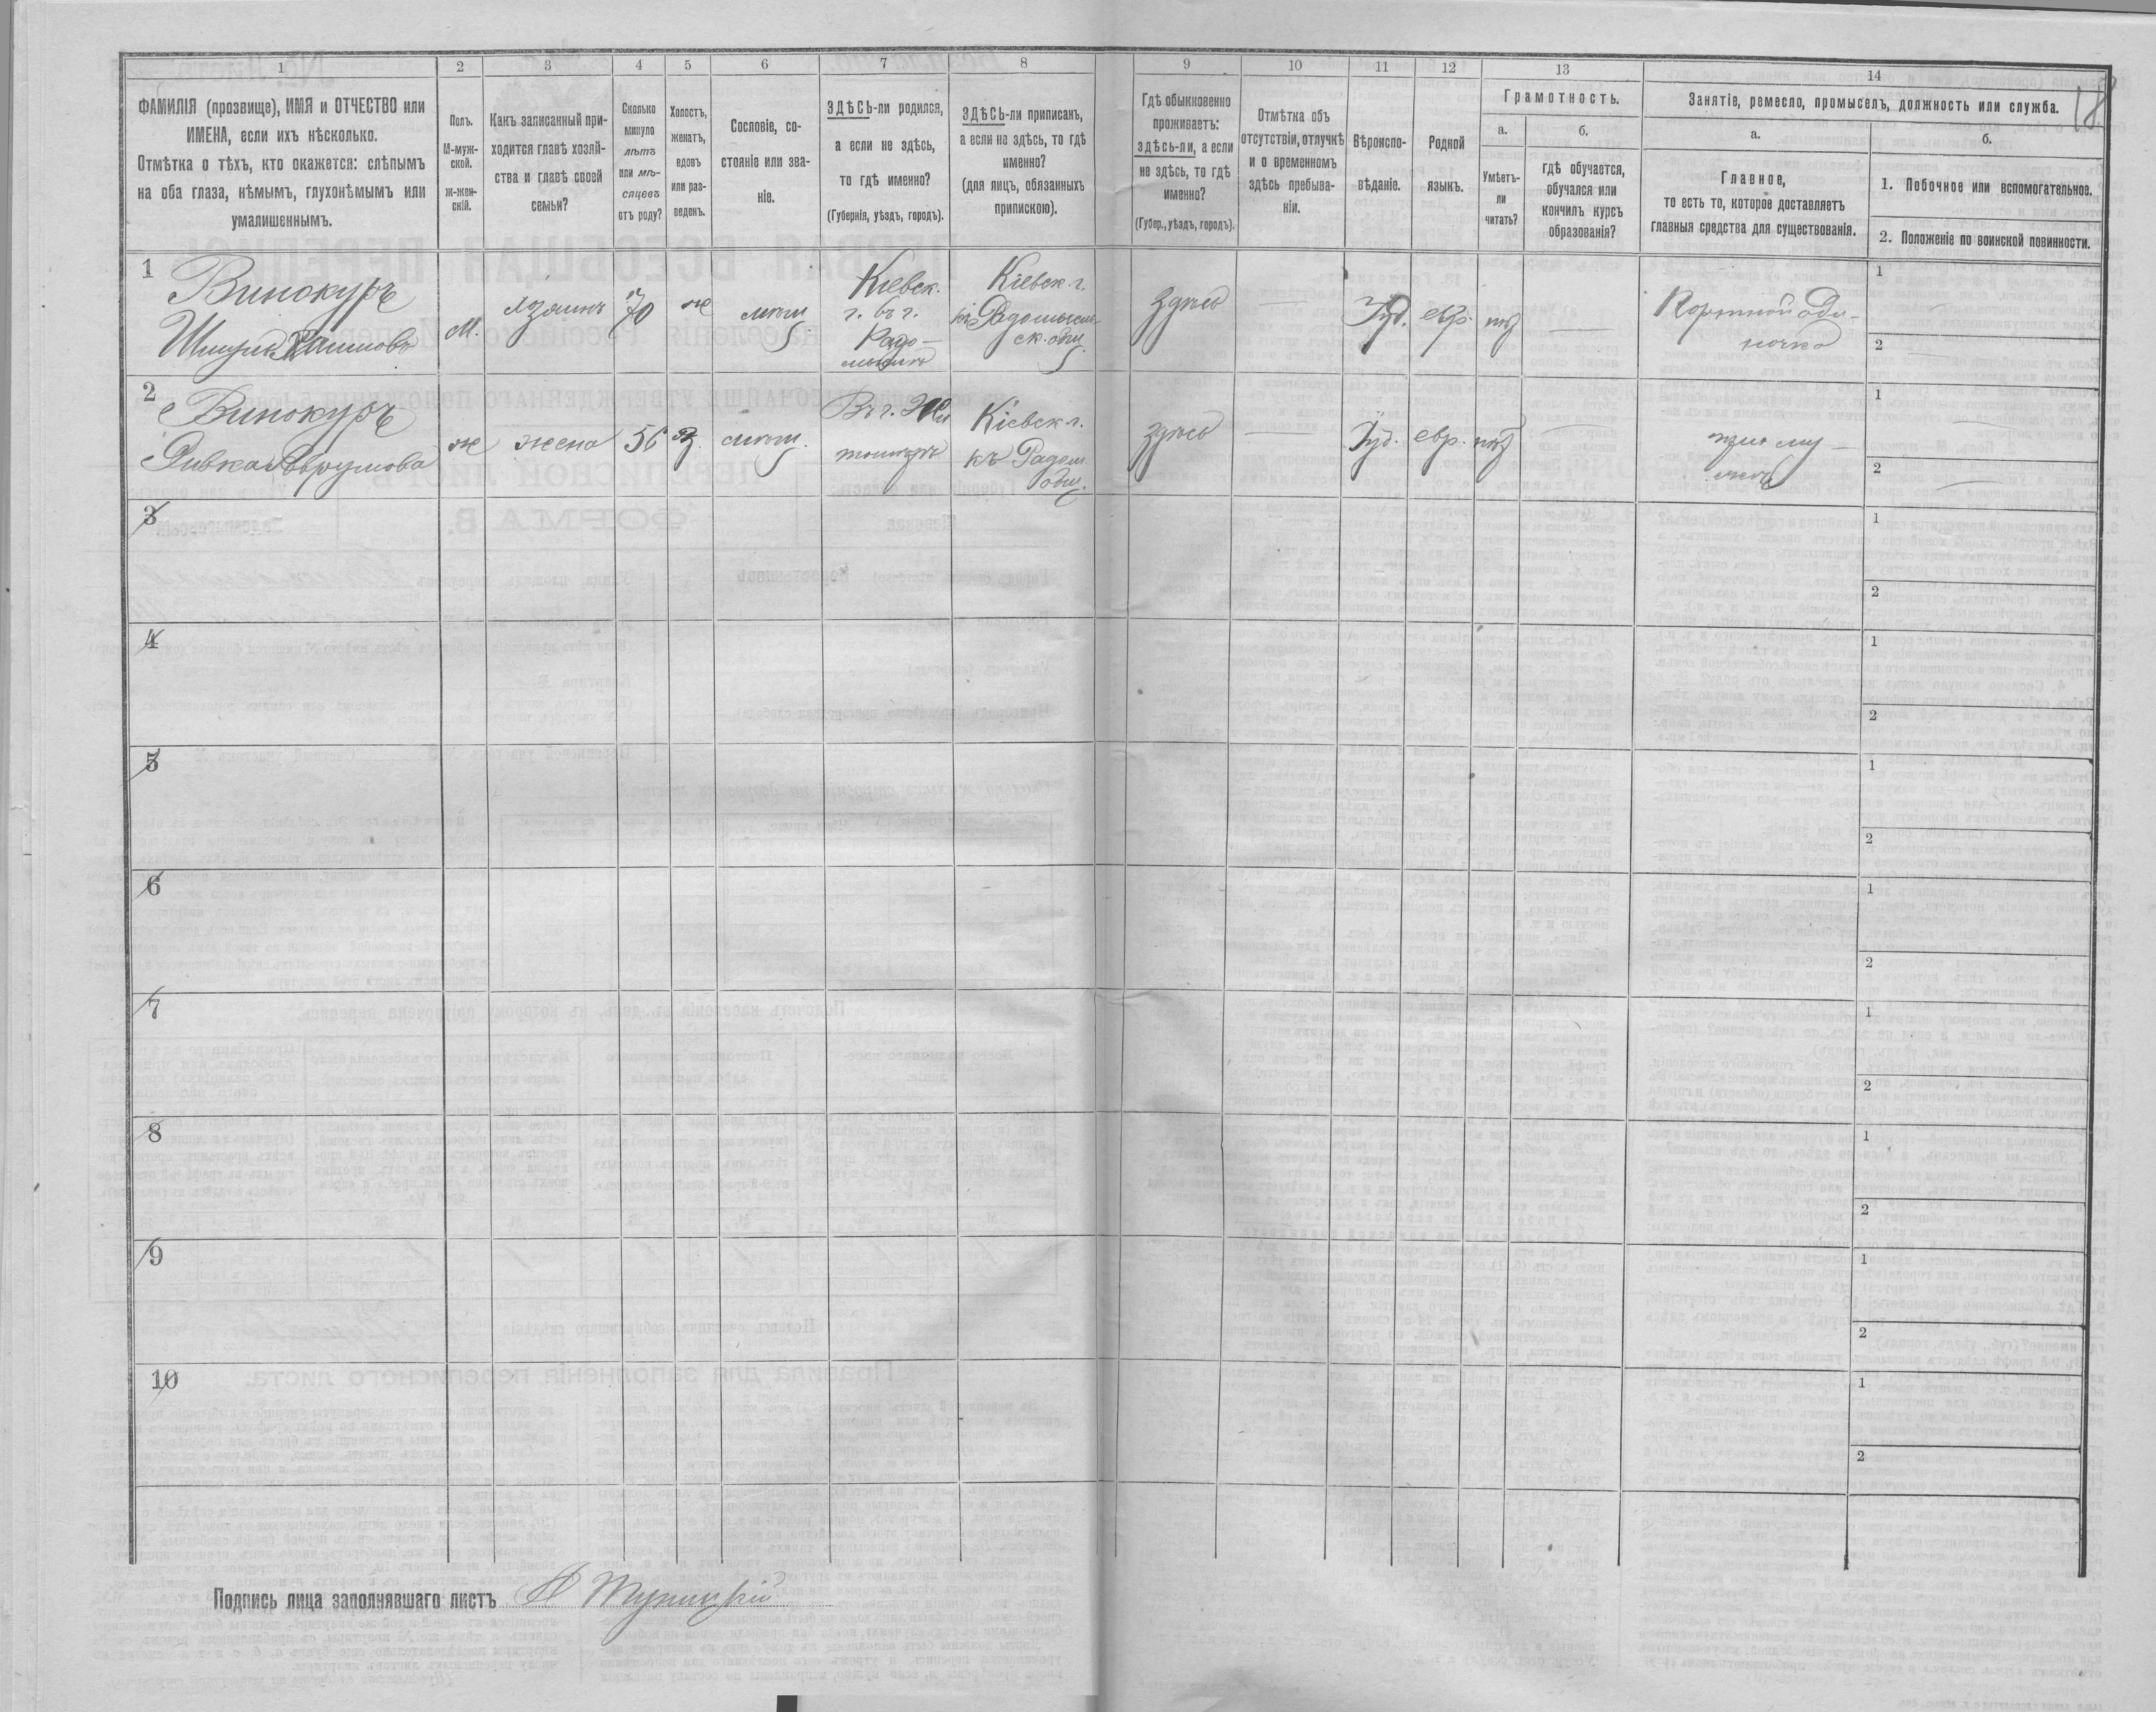 1
2
3
4
5
6
7
8
9
10
11
12
13
14
ФАМИЛІЯ (прозвище), ИМЯ и ОТЧЕСТВО или
ИМЕНА, если ихъ нѣсколько.
Отмѣтка о тѣхъ, кто окажется: слѣпымъ
на оба глаза, нѣмымъ, глухонѣмымъ или
умалишеннымъ.
Полъ.
М-муж-
ской.
ж-жен-
скій.
Какъ записанный при-
ходится главѣ хозяй-
ства и главѣ своей
семьи?
Сколько
минуло
лѣтъ
или мѣ-
сяцевъ
отъ роду?
Холостъ,
женатъ,
вдовъ
или раз-
веденъ.
Сословіе, со-
стояніе или зва-
ніе.
ЗДѢСЬ-ли родился,
а если не здѣсь,
то гдѣ именно?
(Губернія, уѣздъ, городъ).
ЗДѢСЬ-ли приписанъ,
а если не здѣсь, то гдѣ
именно?
(для лицъ, обязанныхъ
припискою).
Гдѣ обыкновенно
проживаетъ:
здѣсь-ли, а если
не здѣсь, то гдѣ
именно?
(Губер., уѣздъ, городъ).
Отмѣтка объ
отсутствіи, отлучкѣ
и о временномъ
здѣсь пребыва-
ніи.
Вѣроиспо-
вѣданіе.
Родной
языкъ.
Грамотность.
а.
Умѣетъ-
ли
читать?
б.
гдѣ обучается,
обучался или
кончилъ курсъ
образованія?
Занятіе, ремесло, промыселъ, должность или служба.
18
а.
Главное,
то есть то, которое доставляетъ
главныя средства для существованія.
б.
1. Побочное или вспомогательное.
2. Положеніе по воинской повинности.
1
Винокуръ
М.
70
ж
Кіевск.
г. въ г.
Радо-
Кіевск. г.
здѣсь
—
Іуд.
евр.
нѣт
—
Портной оди-
ночка
1
—
2
—
2
Винокуръ
Ривка Аврумова
ж
жена
56
З.
мѣщ.
Въ г. Жи
томиръ
Кіевск. г.
къ Радом.
общ.
здѣсь
—
Іуд.
евр.
нѣт
—
при му-
жѣ
1
—
2
—
3
1
2
4
1
2
5
1
2
6
1
2
7
1
2
8
1
2
9
1
2
10
1
2
Подпись лица заполнявшаго листъ